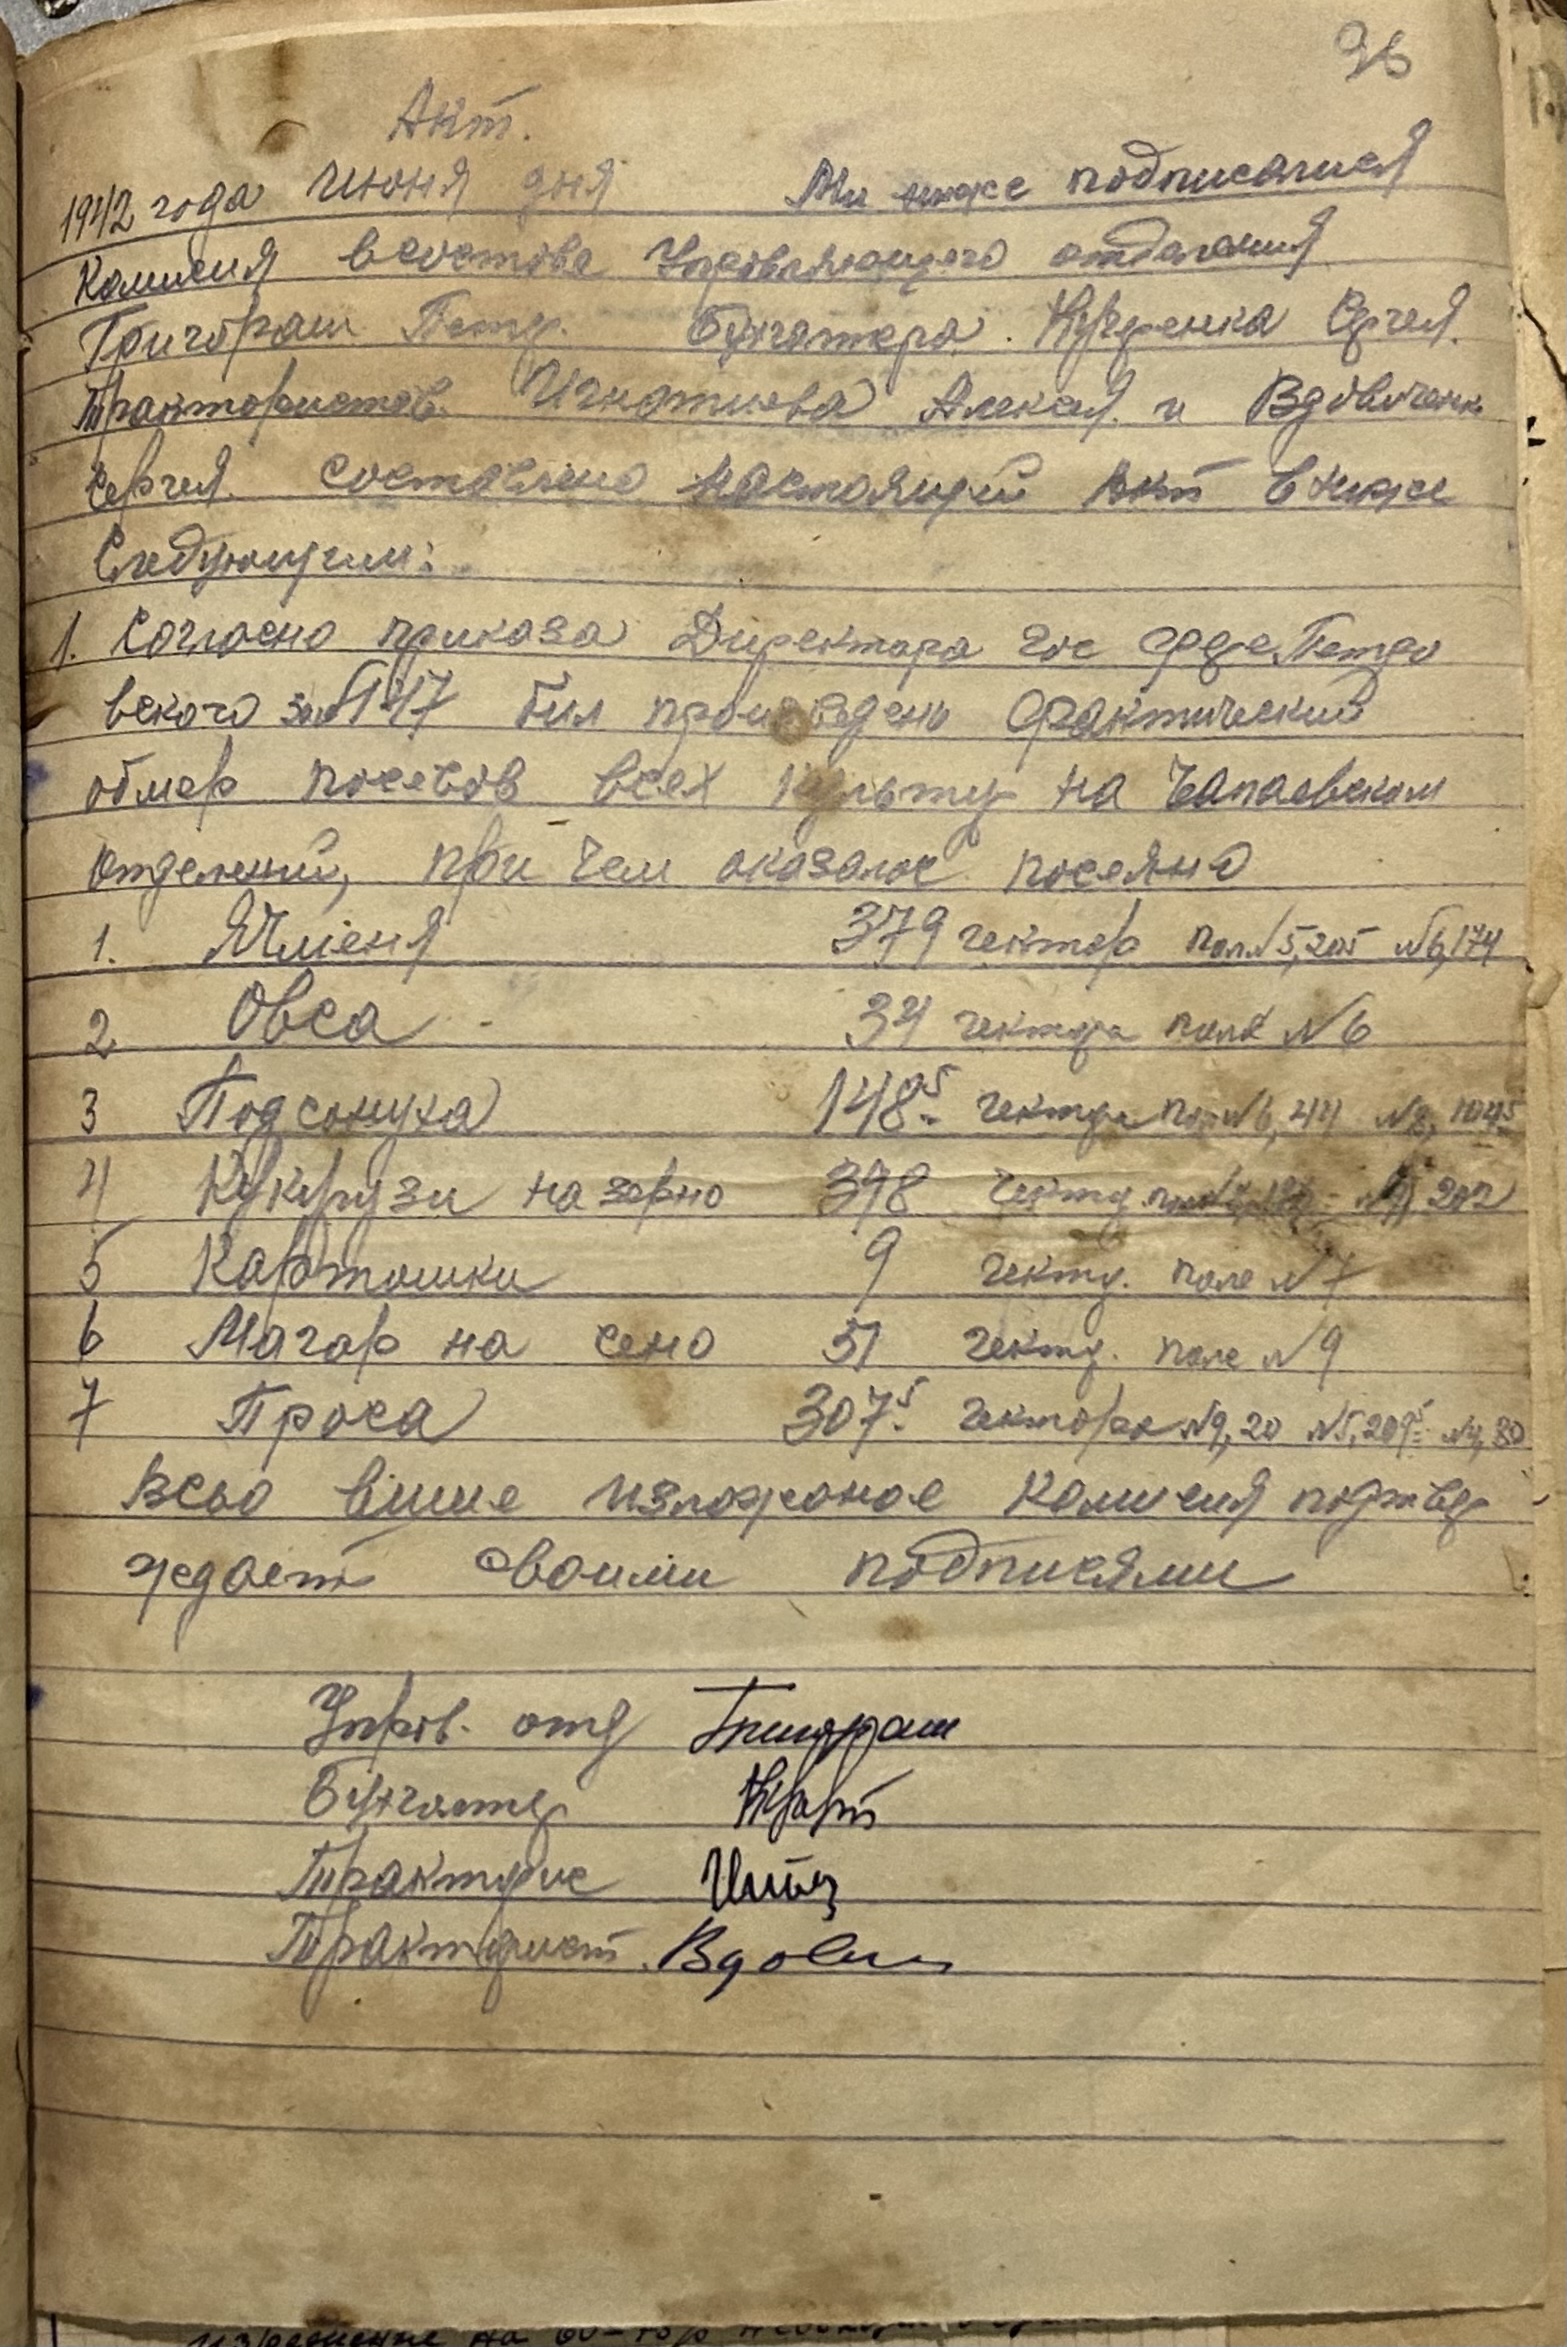 96
Акт.
1942 года июня дня Ми ниже подписалися
Комисия в составе Управляющего отделения
Григораш Петр. Бухгатера. Кучеренка Сергея.
Тракториотов. Игнатиева Алексея. и Вдовиченк
Сергея. составлено настоящий Акт в ниже
Следующим:
1. Согласно приказа Директора гос Петро
вского за №147 бил произведень фрактический
обмер посевов всех культур на Чапаевском
отделений, при чем оказалос посеяно
1. Ячменя 379 гектор пол.№5,205 №6,174
2 Овса 34 гектора поля №6
3 Подсонуха 148⁵ гектора пол №6,44 №8, 104⁵
4 Кукурузи на зерно 398 гекто.
5 Картошки 9 гекто. поле №7
6 Магар на сено 51 гекто. поле №9
7 Проса 307⁵ гектора №9,20 №5,209⁵ №4,80
Всьо више изложоное Комисия подтвер
ждает своими подписями
Управ. отд Григораш
Бухгатер
Тракторис
Тракторист Вдович